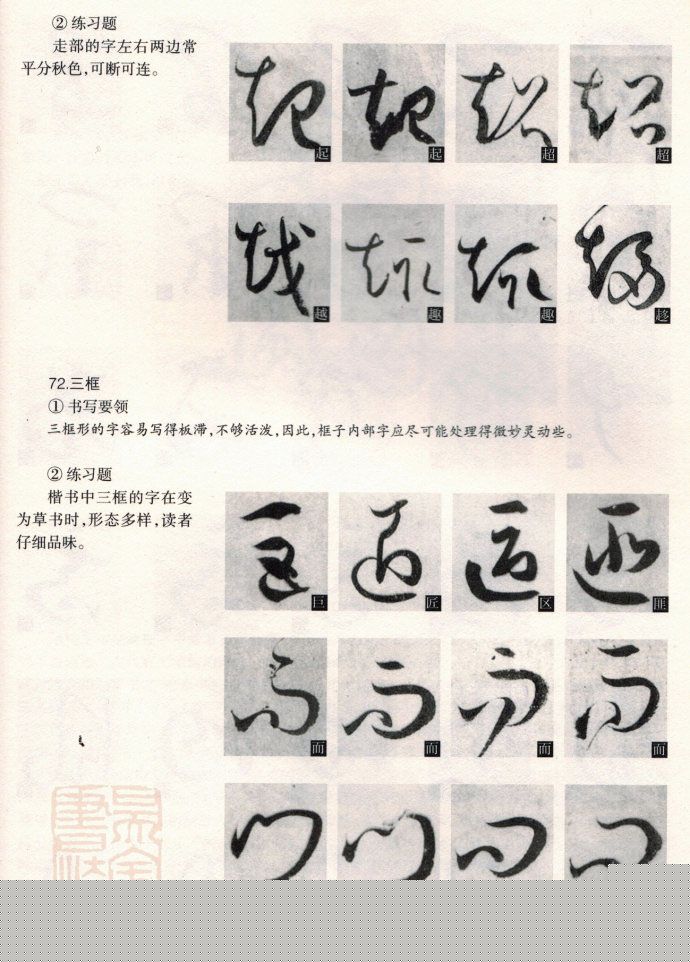 ② 练习题
走部的字左右两边常
平分秋色,可断可连。
起
起
超
超
越
趣
趣
趁
72.三框
① 书写要领
三框形的字容易写得板滞,不够活泼,因此,框子内部字应尽可能处理得微妙灵动些。
② 练习题
楷书中三框的字在变
为草书时,形态多样,读者
仔细品味。
巨
匠
区
匪
而
而
而
而